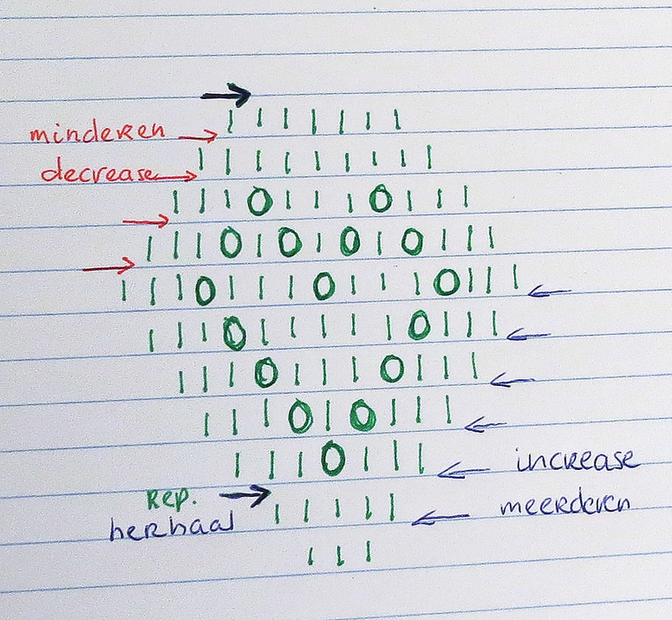 | | | | | | |
minderen
| | | | | | | | |
decrease
| | | O | | | O | | |
| | | O | O | O | O | | |
| | | O | | | O | | | O | | |
| | | O | | | | | O | | |
| | | O | | | O | | |
| | | O | O | | |
| | | O | | | increase
Rep.
herhaal | | | | | meerderen
| | |